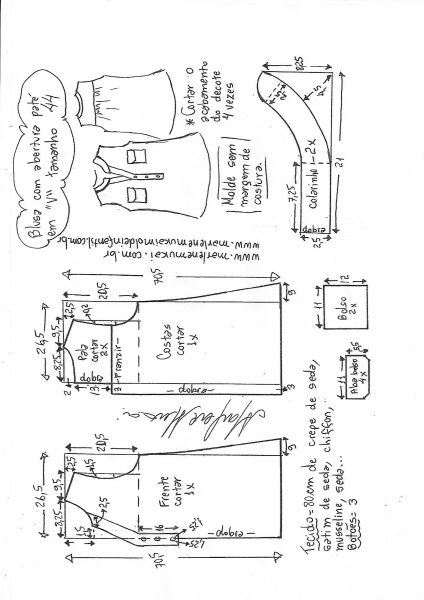 Blusa com abertura patê
em "V" tamanho 44
* Cortar o
acabamento
do decote
4 vezes
Molde sem
margem de
costura.
www.marlenemukai.com.br
www.marlenemukaimoldeinfantil.com.br
8,25
4,5
Colarinho - 2x
7,25
21
dobra
2,5
70,5
20,5
26,5
8,25
9,5
2,5
9,2
2
13
3
Pala
cortar
2x
dobra
Franzir
Costas
cortar
1x
dobra
9
3
12
11
Bolso
2x
5,5
11
Aba bolso
4x
26,5
8,25
9,5
2,5
20,5
1,5
2,5
16
Frente
cortar
1x
dobra
1,25
1,25
70,5
9
Tecido = 80cm de crepe de seda,
satim de seda, chiffon,
musseline, seda...
Botoes = 3